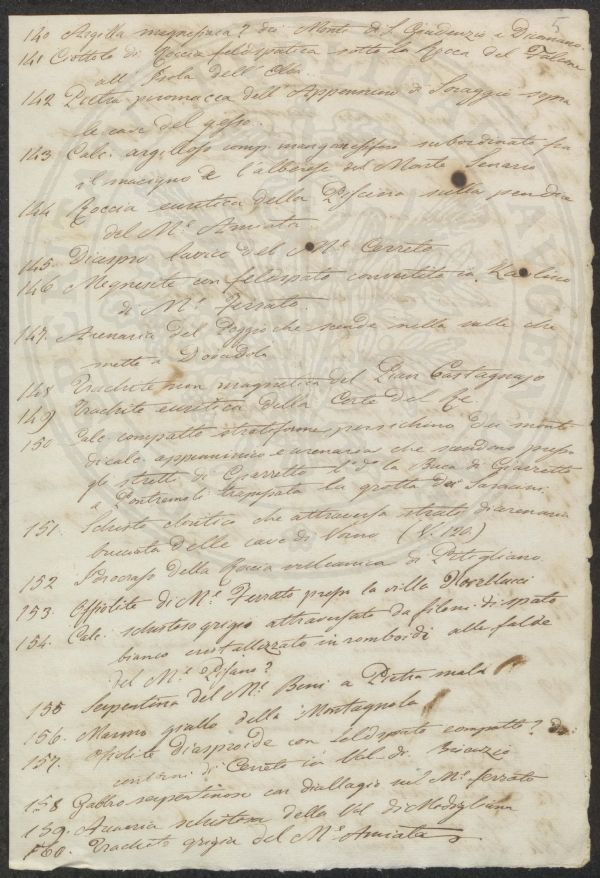 5
140 Argilla magnesiaca? dei Monti di S. Giudenzio e Dicomano.
141 Ciottolo di Roccia feldspatica sotto la Rocca del Falcone
all'Isola dell'Elba.
142 Pietra piromacca dell'Appennino di Soraggio sopra
le cave del gesso.
143. Calc. argilloso comp. manganesifero subordinato fra
il macigno e l'alberese del Monte Senario
144 Roccia euritica della sulla pendice
del M.e Amiata
145. Diaspro del M.e Cerreto
146 Megnesite con feldspato convertito in Kaolino
di M.e Ferrato.
147. Arenaria del Poggio che scende nella valle che
mette a Dovadola
148 Trachite non magnetica del Pian Castagnajo
149 Trachite euritica della Corte del Re.
150 Calc. compatto stratiforme persichino dei monti
di calc. appenninico e arenaria che scendono presso
gli stretti di Giarretto la Buca di Giarretto
a Pontremoli la grotta dei Saracini.
151. Schisto cloritico che attraversa strato di arenaria
bucciata delle cave di Vano (V. 120)
152 Idocraso della Roccia vulcanica di Pitigliano.
153. Offiolite di M.e Ferrato presso la villa Novellucci
154. Calc. schistoso grigio attraversato da filoni di spato
bianco cristallizzato in romboidi alle falde
del M.e Pisano?
155 Serpentina del M.e Beni a Pietra mala
156. Marmo giallo della Montagnola
157. Ofiolite Diasproide con feldspato compatto? dei
contorni di Cerreto in Val di
158 Gabbro serpentinoso con diallagio del M.e Ferrato
159. Arenaria schistosa della Val di Modigliana
160. Trachite grigia del M.e Amiata